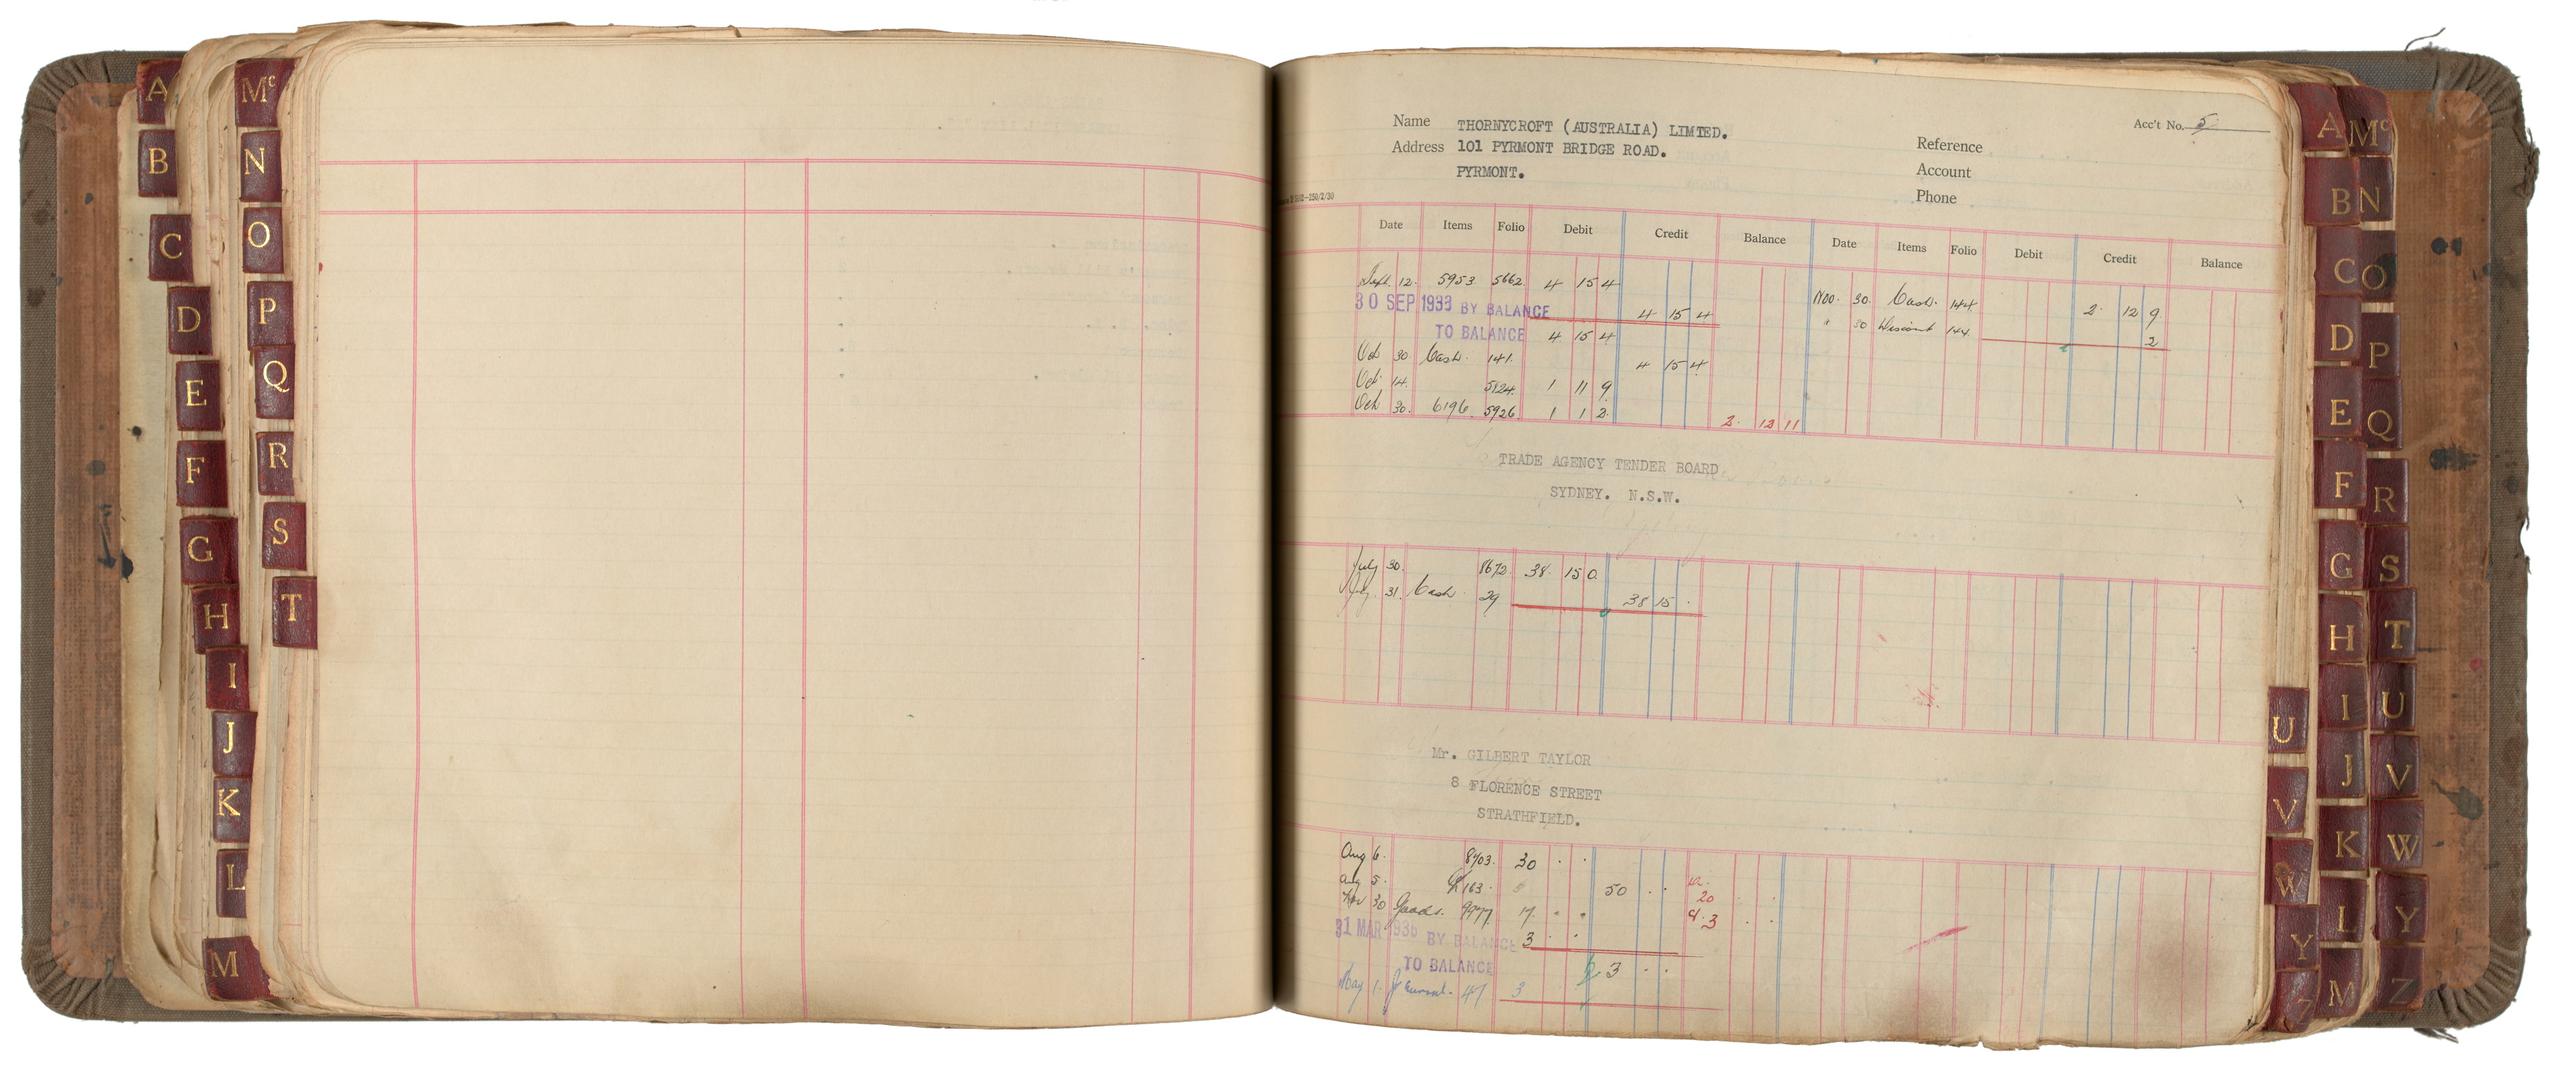 A
B
C
D
E
F
G
H
I
J
K
L
M
Mc
N
O
P
Q
R
S
T
Name THORNYCROFT (AUSTRALIA) LIMTED.
Acc't No. 5
Address 101 PYRMONT BRIDGE ROAD.
PYRMONT.
Reference
Account
Phone
Date Items Folio Debit Credit Balance Date Items Folio Debit Credit Balance
Sept. 12. 5953 5662 4 15 4
30 SEP 1933 BY BALANCE 4 15 4
TO BALANCE 4 15 4
Oct 30 Cash. 141. 4 15 4
Oct 14. 5824. 1 11 9
Oct 30. 6196 5926 1 1 2 2. 12 11
Nov. 30. Cash. 144. 2. 12 9
" 30 Discount 144. 2
TRADE AGENCY TENDER BOARD
SYDNEY. N.S.W.
July 30. 8672. 38. 15 0
31. Cash 29 38 15 .
Mr. GILBERT TAYLOR
8 FLORENCE STREET
STRATHFIELD.
Aug 6. 8703. 30 . .
Aug 5. 163. 50 . . 20 . .
Nov 30 Goods. 9977. 17. . . 3 . .
31 MAR 1936 BY BALANCE 3 . .
TO BALANCE 3 . .
May 1. Journal. 47 3
U
V
W
Y
Z
A
B
C
D
E
F
G
H
I
J
K
L
M
Mc
N
O
P
Q
R
S
T
U
V
W
Y
Z